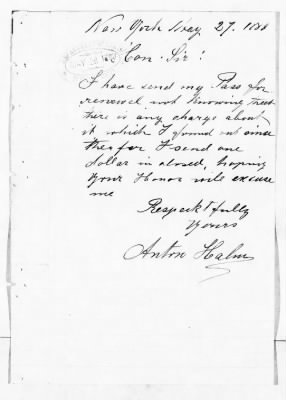 New York May 29. 1888
Hon. Sir!
I have send my Pass for
renewel not knowing that
there is any charge about
it which I found out since
therfor I send one
dollar in closed, hoping
Your Honor will excuse
me
Respecktfully
Yours
Anton Halm